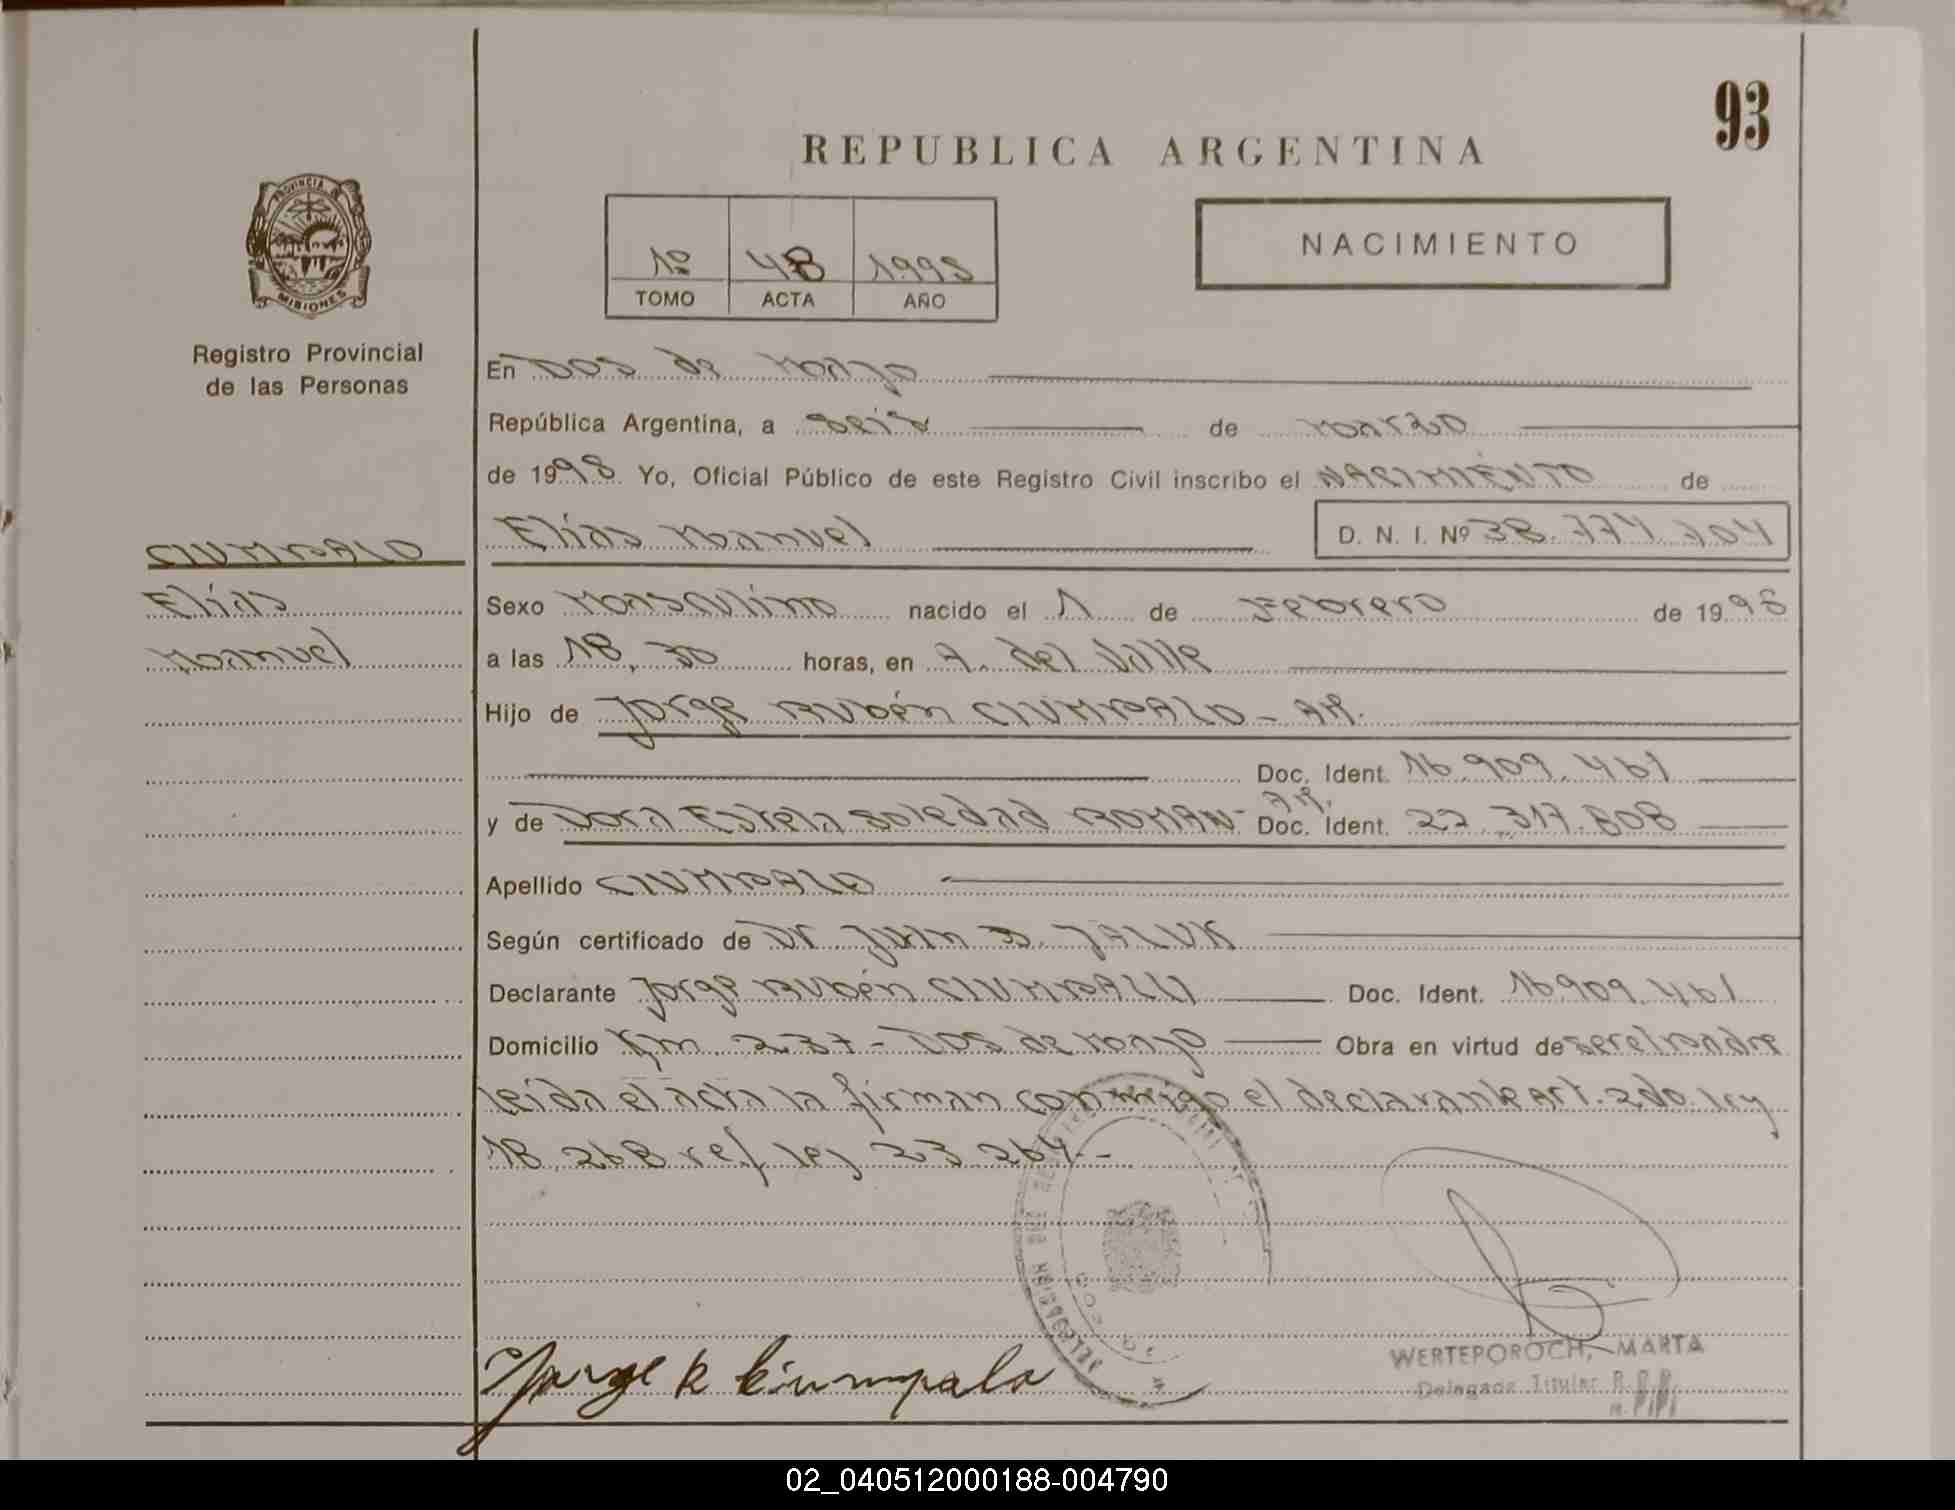 93
REPUBLICA ARGENTINA
PROVINCIA DE
MISIONES
Registro Provincial
de las Personas
1º 48 1998
TOMO ACTA AÑO
NACIMIENTO
En Dos de Mayo
República Argentina, a seis de Marzo
de 1998 Yo, Oficial Público de este Registro Civil inscribo el NACIMIENTO de
CIUMPALO
Elías Manuel D. N. I. Nº 38.774.704
Elías
Sexo Masculino nacido el 1 de Febrero de 1998
Manuel
a las 18,30 horas, en A. del Valle
Hijo de Jorge Rubén CIUMPALO - AR.
Doc. Ident. 16.909.461
y de Dora Estela Soledad ROMAN - AR. Doc. Ident. 22.317.808
Apellido CIUMPALO
Según certificado de Dr Juan D. JALUK
Declarante Jorge Rubén CIUMPALO Doc. Ident. 16.909.461
Domicilio Km 237 - Dos de Mayo Obra en virtud de ser el padre
leída el acta la firman conmigo el declarante Art. 2do. ley
18.268 ref ley 23.264.-
Jorge R Ciumpalo
WERTEPOROCH, MARTA
Delegada Titular R.
02_040512000188-004790